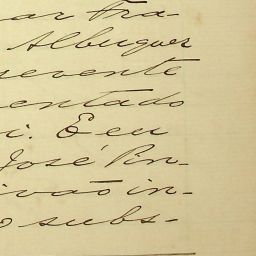 ar Fra-
Albuquer
revente
entado
i. E eu
José Pin-
ivão in-
o subs-